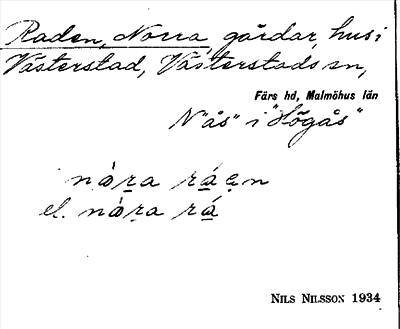 Raden, Norra, gårdar, hus i
Västerstad, Västerstads sn,
Färs hd, Malmöhus län
N "ås" i "Högås"
nò̱ṟa rá̱ęn
el. nò̱ṟa rá̱
NILS NILSSON 1934